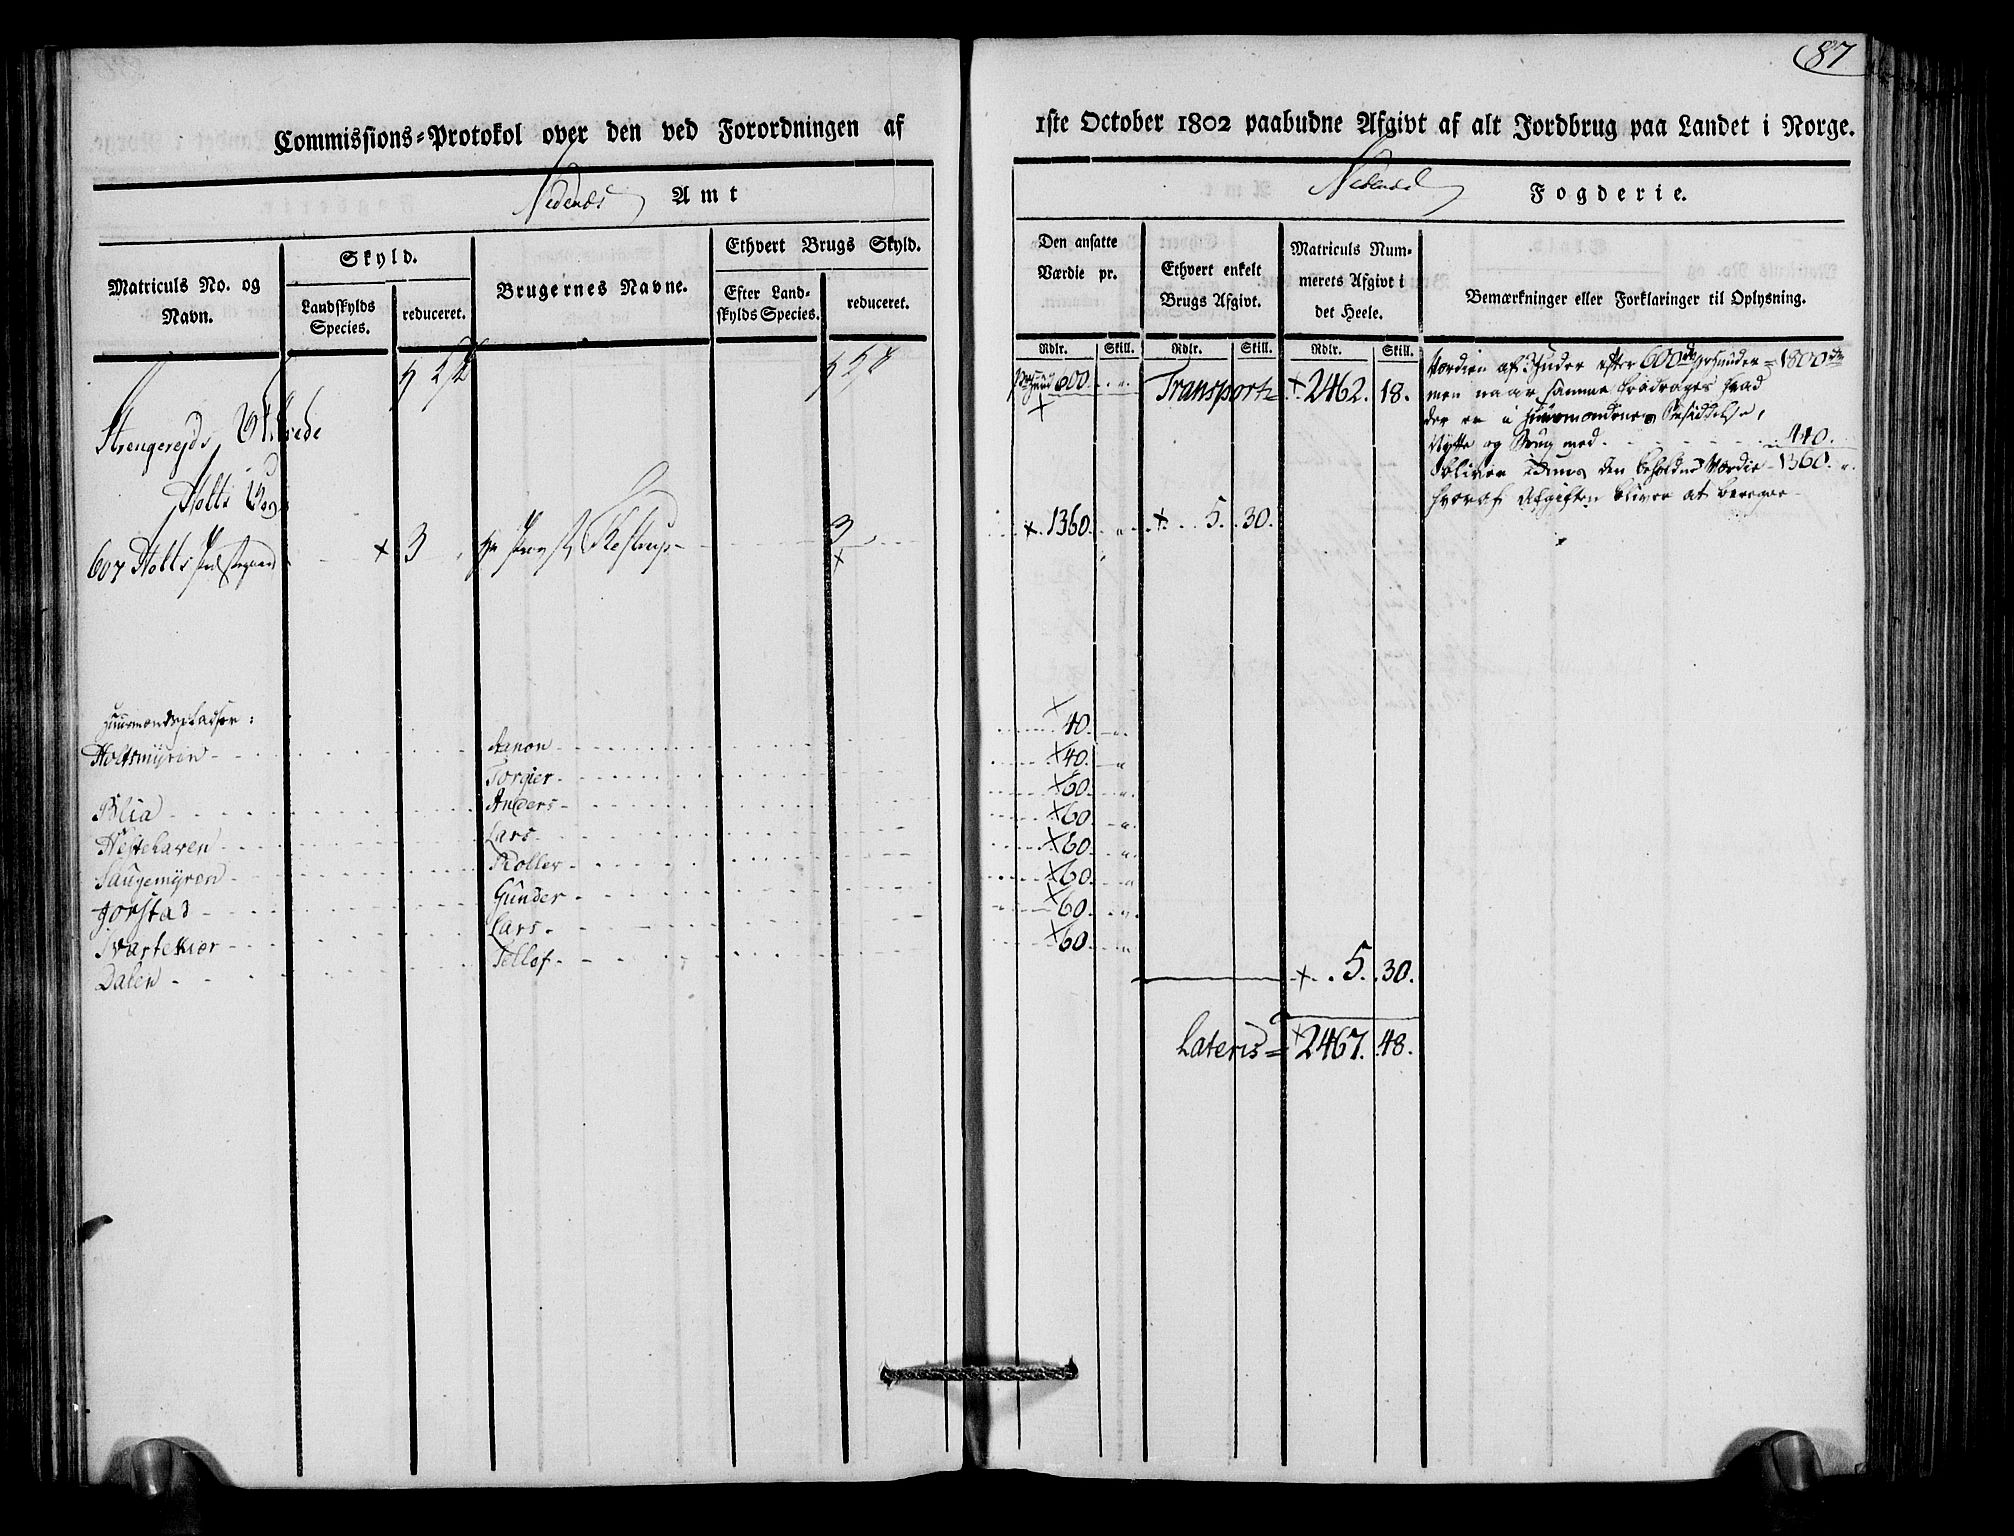 87
Commissions-Protokol over den ved Forordningen af 1ste October 1802 paabudne Afgivt af alt Jordbrug paa Landet i Norge.
Nedenæs Amt
Nedenæs Fogderie.
Matriculs No. og Navn.
Skyld.
Landskylds Species.
reduceret.
Brugernes Navne.
Ethvert Brugs Skyld.
Efter Landskylds Species.
reduceret.
Den ansatte Værdie pr.
Ethvert enkelt Brugs Afgivt.
Matriculs Nummerets Afgivt i det Heele.
Bemærkninger eller Forklaringer til Oplysning.
Rdlr. Skill. Rdlr. Skill. Rdlr. Skill.
600. Transport = + 2462. 18.
Værdien af 3 huder efter 600 dr pr huden = 1800 dr
men naar samme fradrages hvad
der er i Huusmændenes Besiddelse,
Nytte og Brug med 440.
bliver den beholdne Værdie 1360.
hvoraf Afgiften bliver at beregne
Strengereids
Holts Sogn
607 Holts Præstegaard + 3 Hr Provst 3 + 1360. + 5. 30.
Huusmandspladser:
Holtsmyren Aanon + 40.
Torgier + 40.
Blia Anders + 60.
Hestehaven Lars + 60.
Saugemyren Roller + 60.
Jorstad Gunder + 60.
Svartekier Lars + 60.
Dalen Tellof + 60.
+ 5. 30.
Lateris = + 2467. 48.